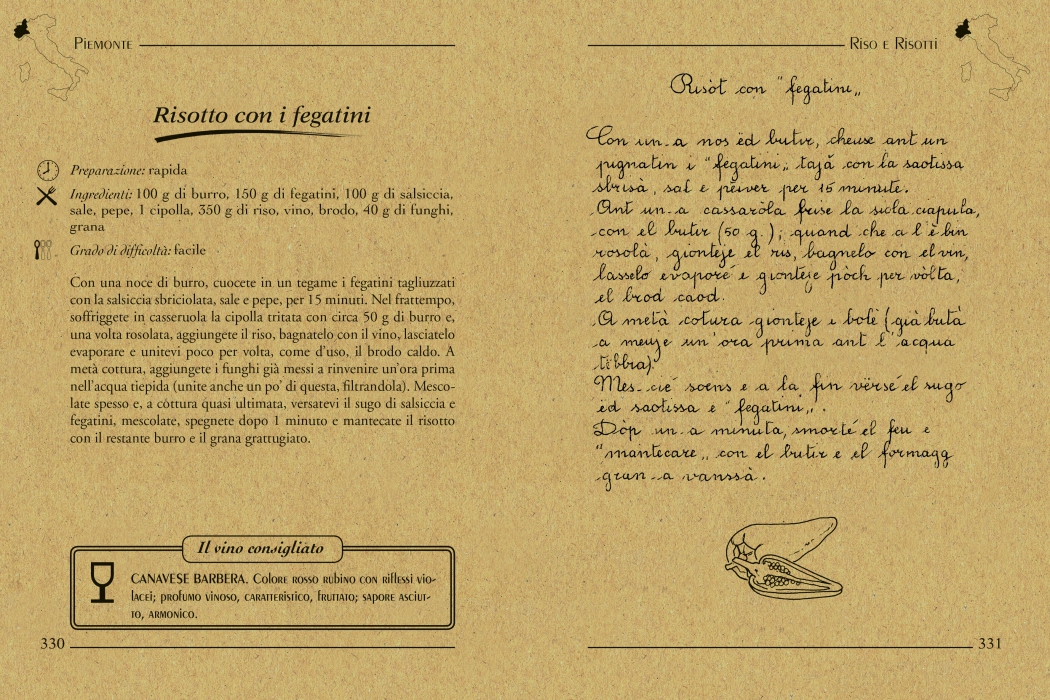 Piemonte
Risotto con i fegatini
Preparazione: rapida
Ingredienti: 100 g di burro, 150 g di fegatini, 100 g di salsiccia,
sale, pepe, 1 cipolla, 350 g di riso, vino, brodo, 40 g di funghi,
grana
Grado di difficoltà: facile
Con una noce di burro, cuocete in un tegame i fegatini tagliuzzati
con la salsiccia sbriciolata, sale e pepe, per 15 minuti. Nel frattempo,
soffriggete in casseruola la cipolla tritata con circa 50 g di burro e,
una volta rosolata, aggiungete il riso, bagnatelo con il vino, lasciatelo
evaporare e unitevi poco per volta, come d'uso, il brodo caldo. A
metà cottura, aggiungete i funghi già messi a rinvenire un'ora prima
nell'acqua tiepida (unite anche un po' di questa, filtrandola). Mesco-
late spesso e, a cottura quasi ultimata, versatevi il sugo di salsiccia e
fegatini, mescolate, spegnete dopo 1 minuto e mantecate il risotto
con il restante burro e il grana grattugiato.
Il vino consigliato
CANAVESE BARBERA. Colore rosso rubino con riflessi vio-
lacei; profumo vinoso, caratteristico, fruttato; sapore asciut-
to, armonico.
330
Riso e Risotti
Risòt con "fegatini„
Con un-a nos ëd butir, cheuse ant un
pignatin i "fegatini„ tajà con la saotissa
sbrisà, sal e pèiver per 15 minute.
Ant un-a cassaròla frise la siola ciapula,
con el butir (50 g.); quand che a l'è bin
rosolà, gionteje el ris, bagnelo con el vin,
lasselo evaporé e gionteje pòch per vòlta,
el brod caod.
A metà cotura gionteje i bolè (già butà
a meuje un'ora prima ant l'acqua
tëbbia).
Mes-cié soens e a la fin vërsé el sugo
ëd saotissa e "fegatini„.
Dòp un-a minuta, smorté el feu e
"mantecare„ con el butir e el formagg
gran-a vanssà.
331